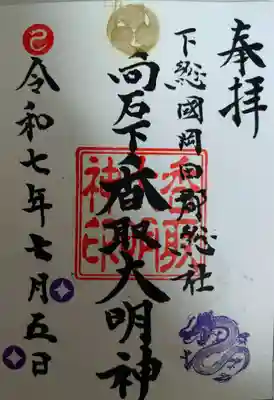 奉拝
下総國岡田郡総社
向石下香取大明神
香取大明神社印
令和七年七月五日